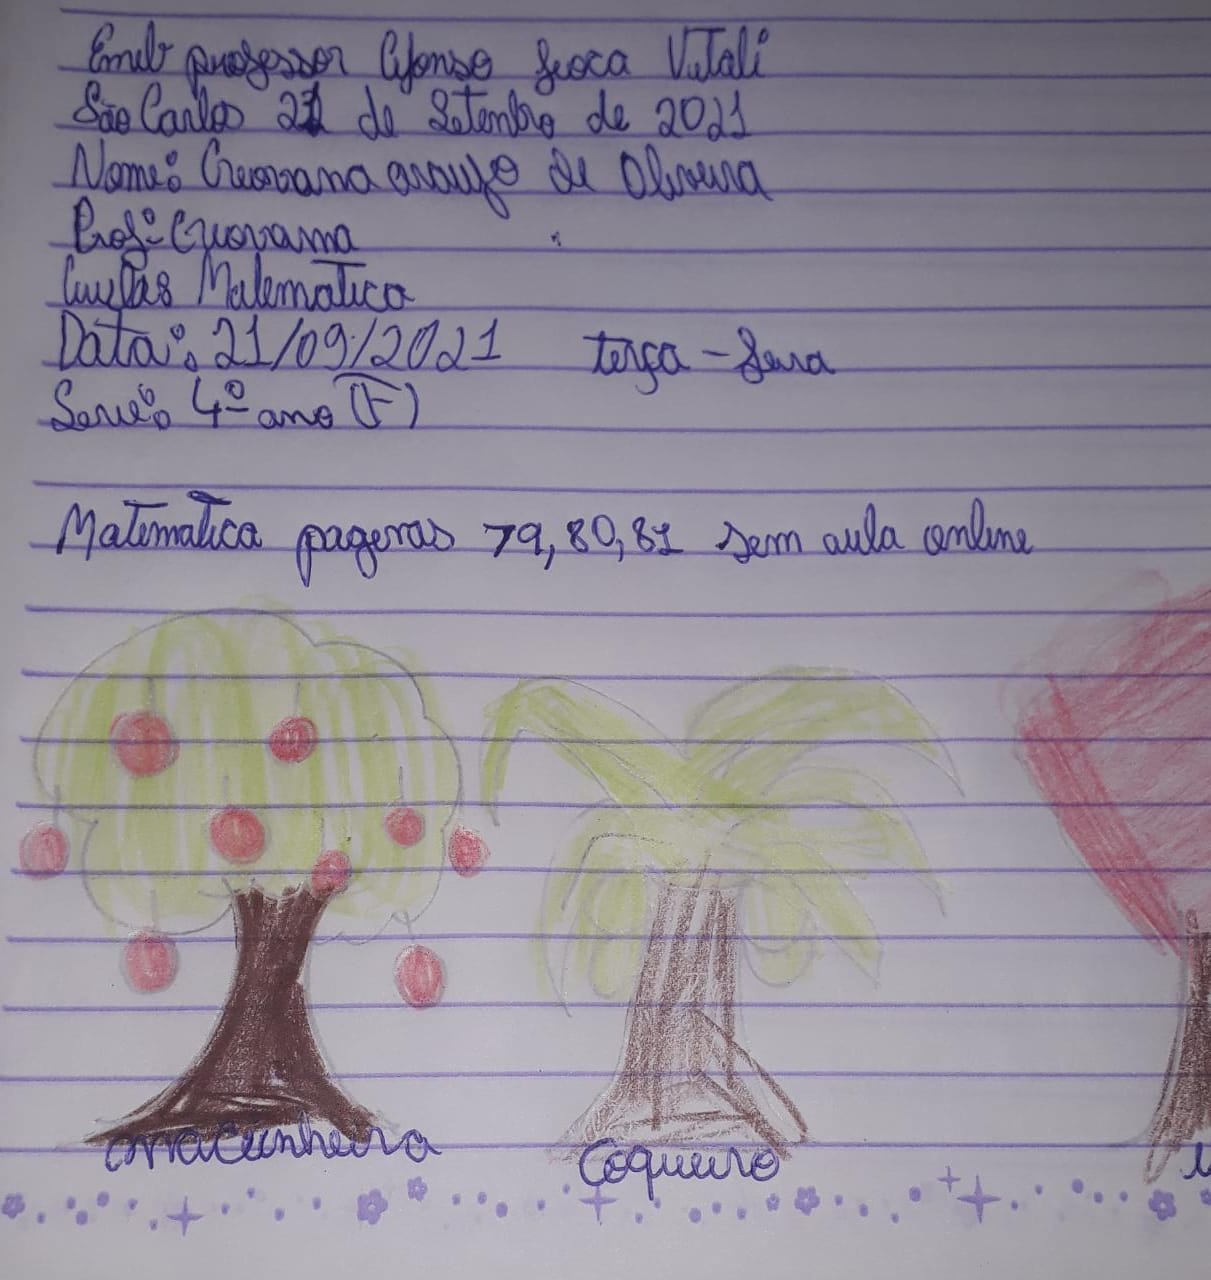 Emeb professor Afonso fioca Vitali
São Carlos 21 de Setembro de 2021
Nome: Geovana araujo de Oliveira
Prof: Geovana
Matematica
Data: 21/09/2021 terça-feira
Serie: 4º ano (F)
Matematica pagenas 79, 80, 81 sem aula online
macieinheira
Coqueiro